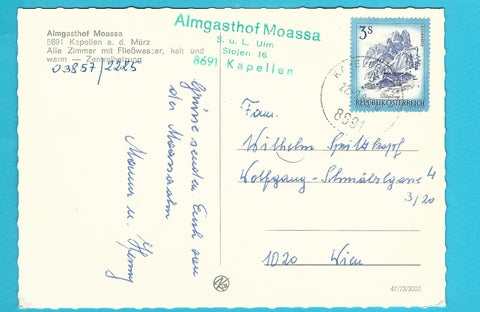 Almgasthof Moassa
8691 Kapellen a. d. Mürz
Alle Zimmer mit Fließwasser, kalt und
warm — Zentralheizung
03857/2225
Almgasthof Moassa
S. u. L. Ulm
Stojen 16
8691 Kapellen
3S
REPUBLIK ÖSTERREICH
8691
Grüsse senden Euch von
der Moassaalm
u. Henny
Fam.
Wilhelm Spitzkopf
Wolfgang-Schmälzlgasse 4
3/20
1020 Wien
47/73/3000